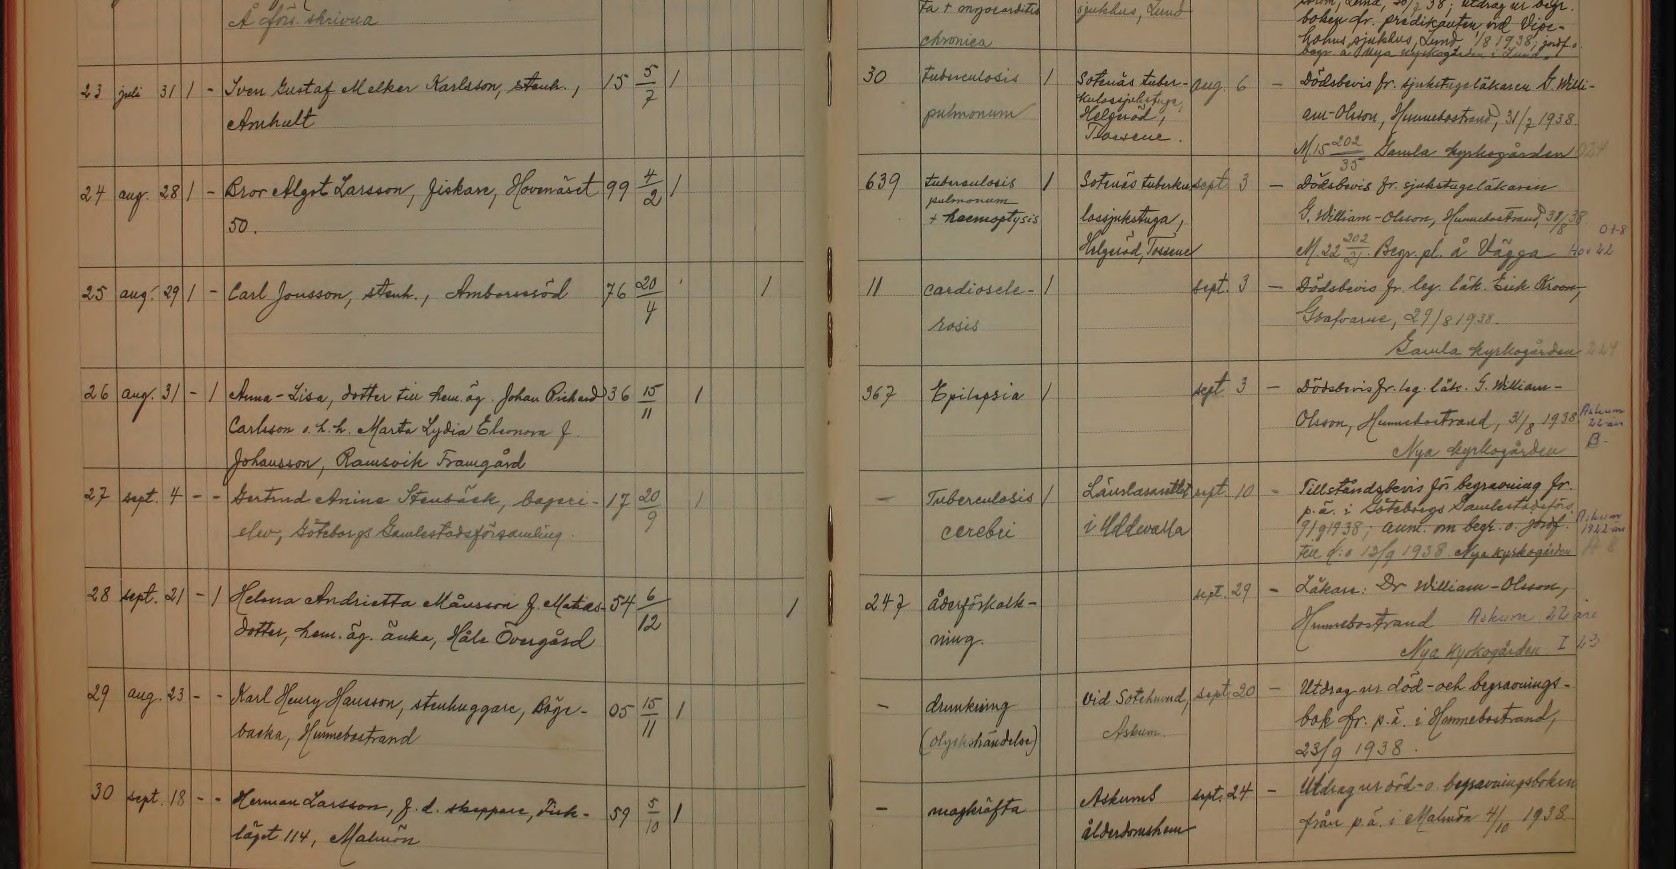 Å förs. skrivna
ta + myocarditis sjukhus, Lund
chronica
boken fr. predikanten vid Vipe-
holms sjukhus, Lund 1/8 1938; jordf.
23 juli 31 1 - Sven Gustaf Melker Karlsson, stenh., 15 5/7 1
Amhult
30 tuberculosis 1 Sotenäs tuber- aug. 6 - Dödsbevis fr. sjukstugeläkaren G. Willi-
kulossjukstuga,
pulmonum Helgeröd, am-Olsson, Hunnebostrand, 31/7 1938.
Tossene.
M. 15 202/35 Gamla kyrkogården
24 aug. 28 1 - Bror Algot Larsson, fiskare, Hovenäset 99 4/2 1
50.
639 tuberculosis 1 Sotenäs tuberku- sept. 3 - Dödsbevis fr. sjukstugeläkaren
pulmonum
+ haemoptysis lossjukstuga, G. William-Olsson, Hunnebostrand, 31/8 38
Helgeröd, Tossene M. 22 202/21. Begr. pl. å Vägga
25 aug. 29 1 - Carl Jonsson, stenh., Amborseröd 76 20/4 1
11 cardioscle- 1 sept. 3 - Dödsbevis fr. leg. läk. Erik Kroon,
rosis Gravarne, 29/8 1938.
Gamla kyrkogården
26 aug. 31 - 1 Anna-Lisa, dotter till hem.äg. Johan Richard 36 15/11 1
Carlsson o. h. h. Marta Lydia Eleonora f.
Johansson, Ramsvik Framgård
367 Epilepsia 1 sept. 3 - Dödsbevis fr. leg. läk. G. William-
Olsson, Hunnebostrand, 31/8 1938. Askum
Nya kyrkogården B
27 sept. 4 - - Gertrud Anine Stenbäck, bageri- 17 20/9 1
elev, Göteborgs Gamlestadsförsamling.
- Tuberculosis 1 Länslasarettet sept. 10 - Tillståndsbevis för begravning fr.
p.ä. i Göteborgs Gamlestadsförs.
cerebri i Uddevalla 9/9 1938; anm. om begr. o. jordf.
till d:o 12/9 1938. Nya kyrkogården
28 sept. 21 - 1 Helena Andrietta Månsson f. Mattias- 54 6/12 1
dotter, hem.äg. änka, Håle Övergård
247 åderförkalk- sept. 29 - Läkare: Dr William-Olsson,
ning. Hunnebostrand Askum 22
Nya kyrkogården I
29 aug. 23 - - Karl Henry Hansson, stenhuggare, Böge- 05 15/11 1
backa, Hunnebostrand
- drunkning vid Sotehuvud, sept. 20 - Utdrag ur död- och begravnings-
(olyckshändelse) Askum. bok fr. p.ä. i Hunnebostrand,
23/9 1938.
30 sept. 18 - - Herman Larsson, f.d. skeppare, Fisk- 59 5/10 1
läget 114, Malmön
- magkräfta Askums sept. 24 - Utdrag ur död- o. begravningsboken
ålderdomshem från p.ä. i Malmön 4/10 1938